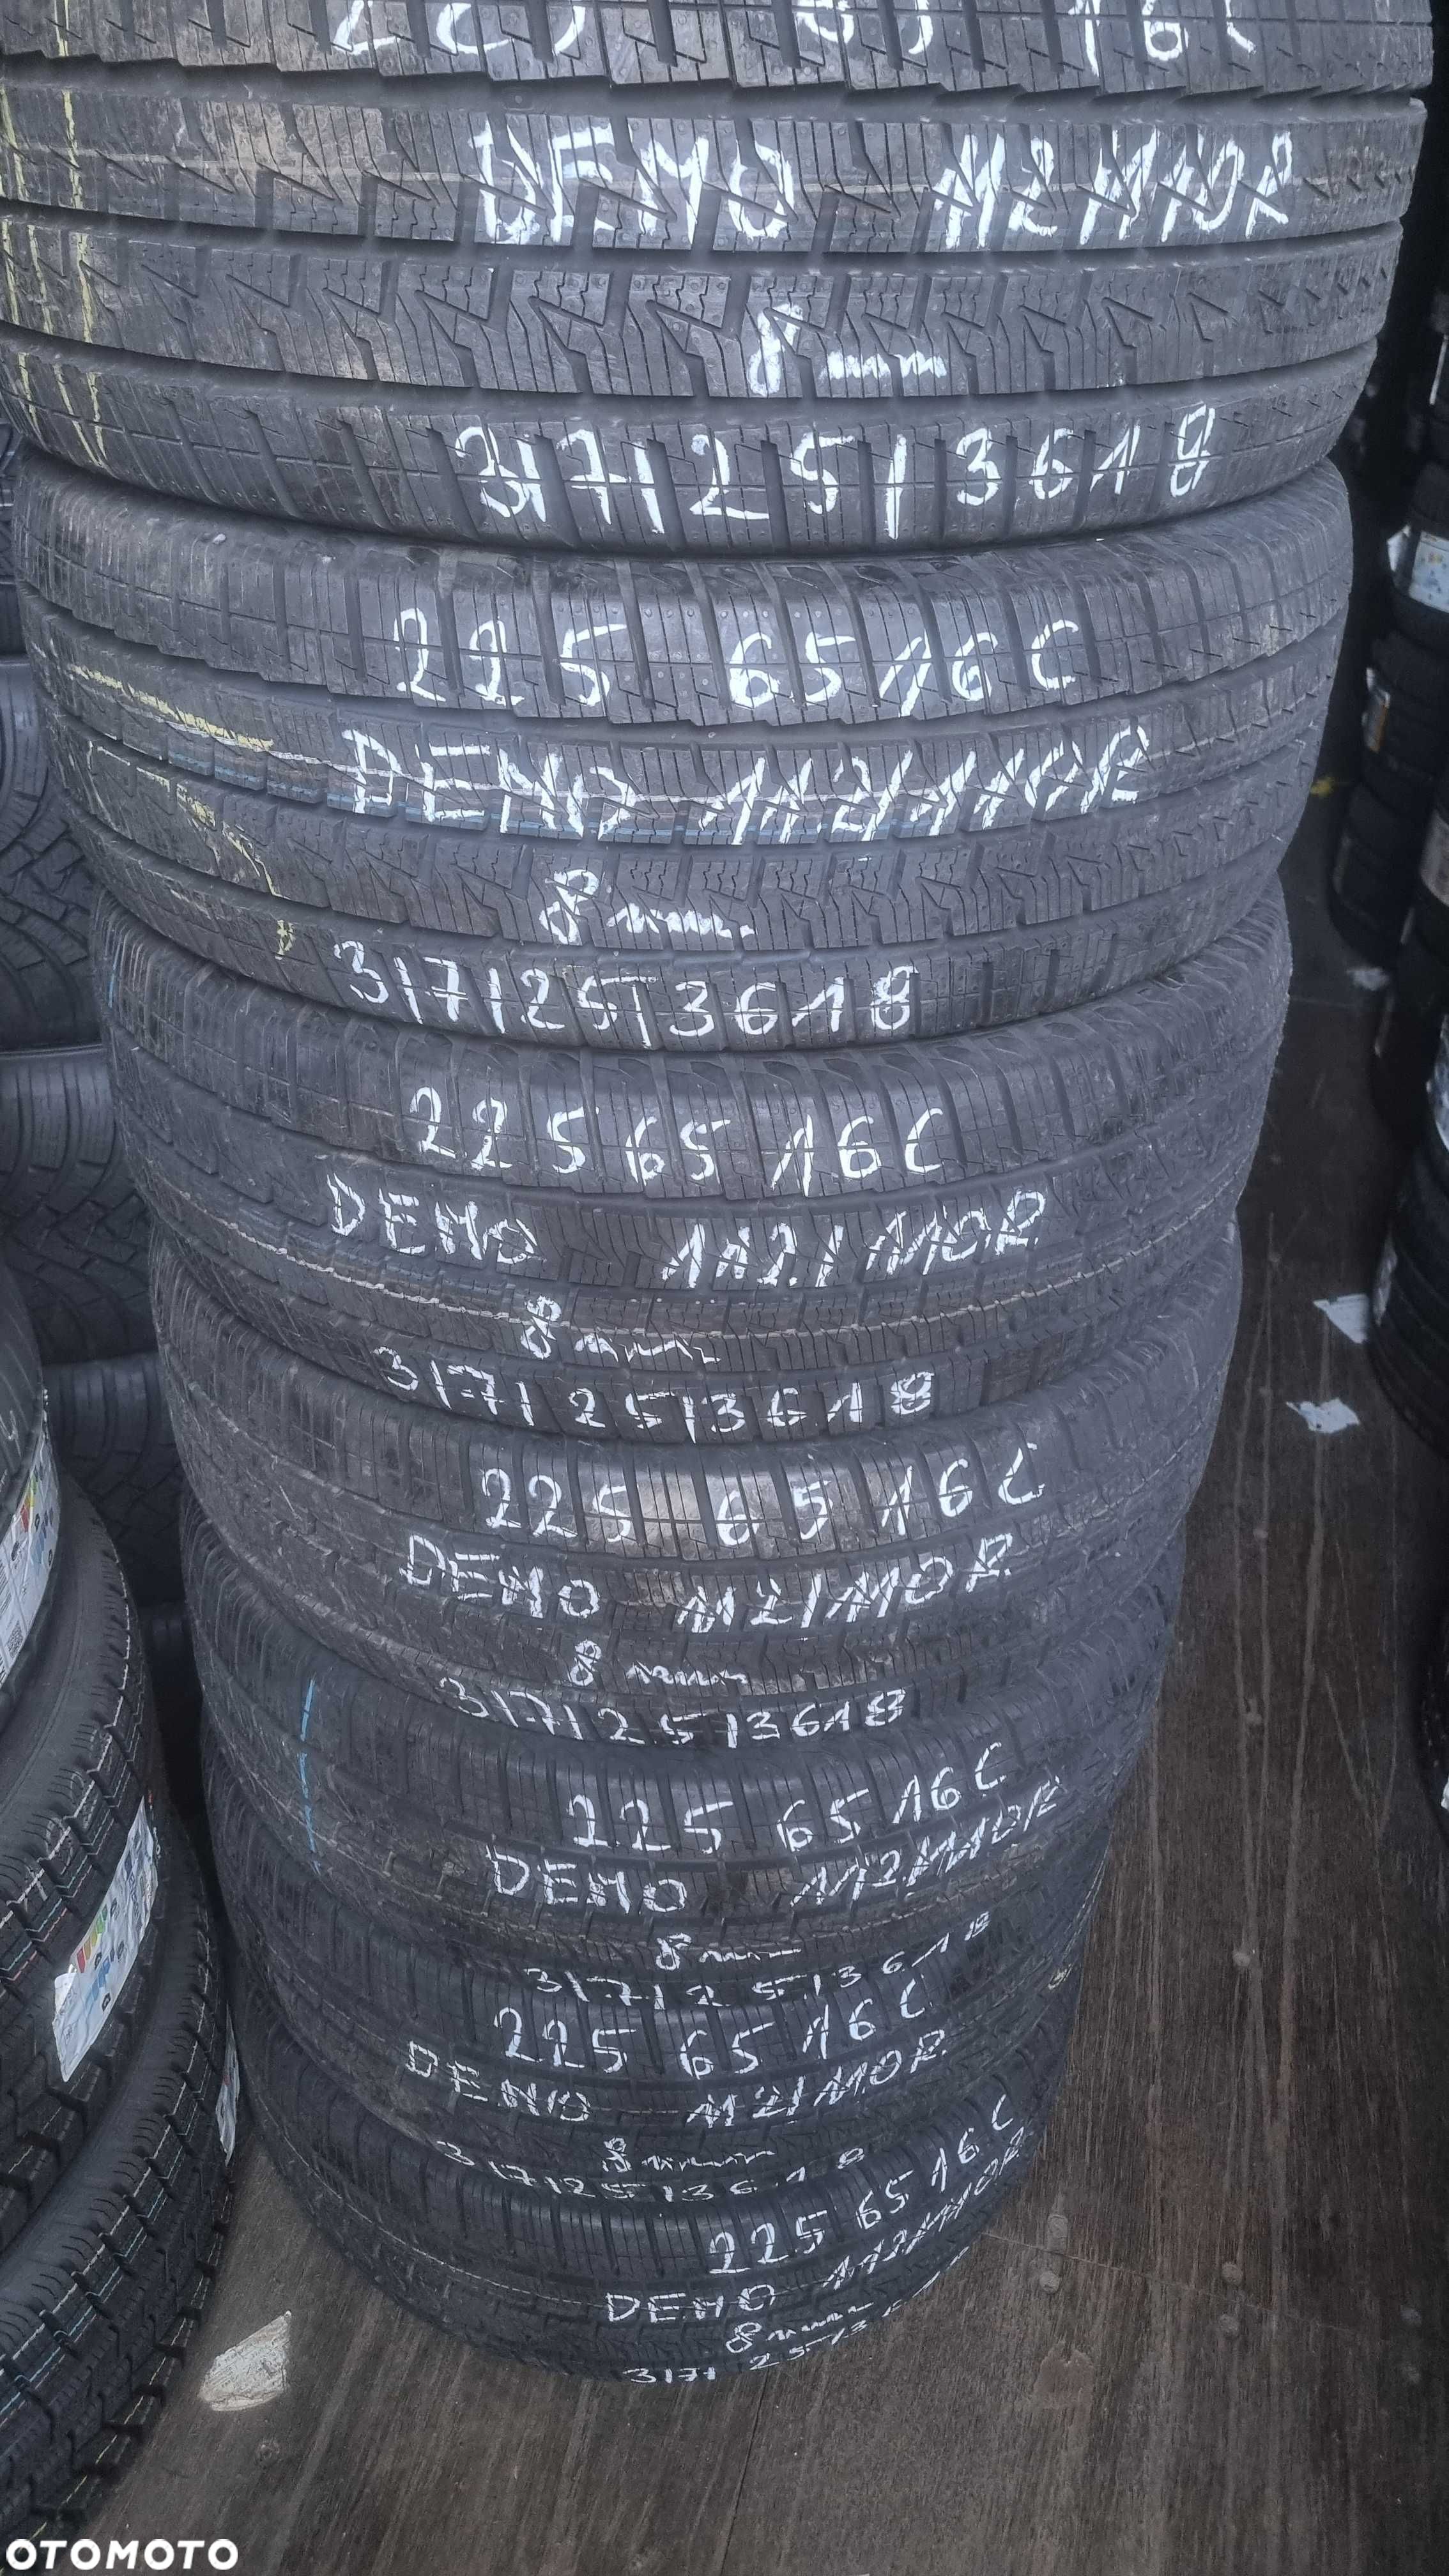 225 65 16C
DEMO 112/110R
8 mm
3/7/25/3618
225 65 16C
DEMO 112/110R
8 mm.
3/7/25/3618
225 65 16C
DEMO 112/110R
8 mm
3/7/25/3618
225 65 16C
DEMO 112/110R
8 mm
3/7/25/3618
225 65 16C
DEMO 112/110R
8 mm
3/7/25/3618
225 65 16C
DEMO 112/110R
8 mm
3/7/25/3618
225 65 16C
DEMO 112/110R
8 mm
3/7/25/3
OTOMOTO